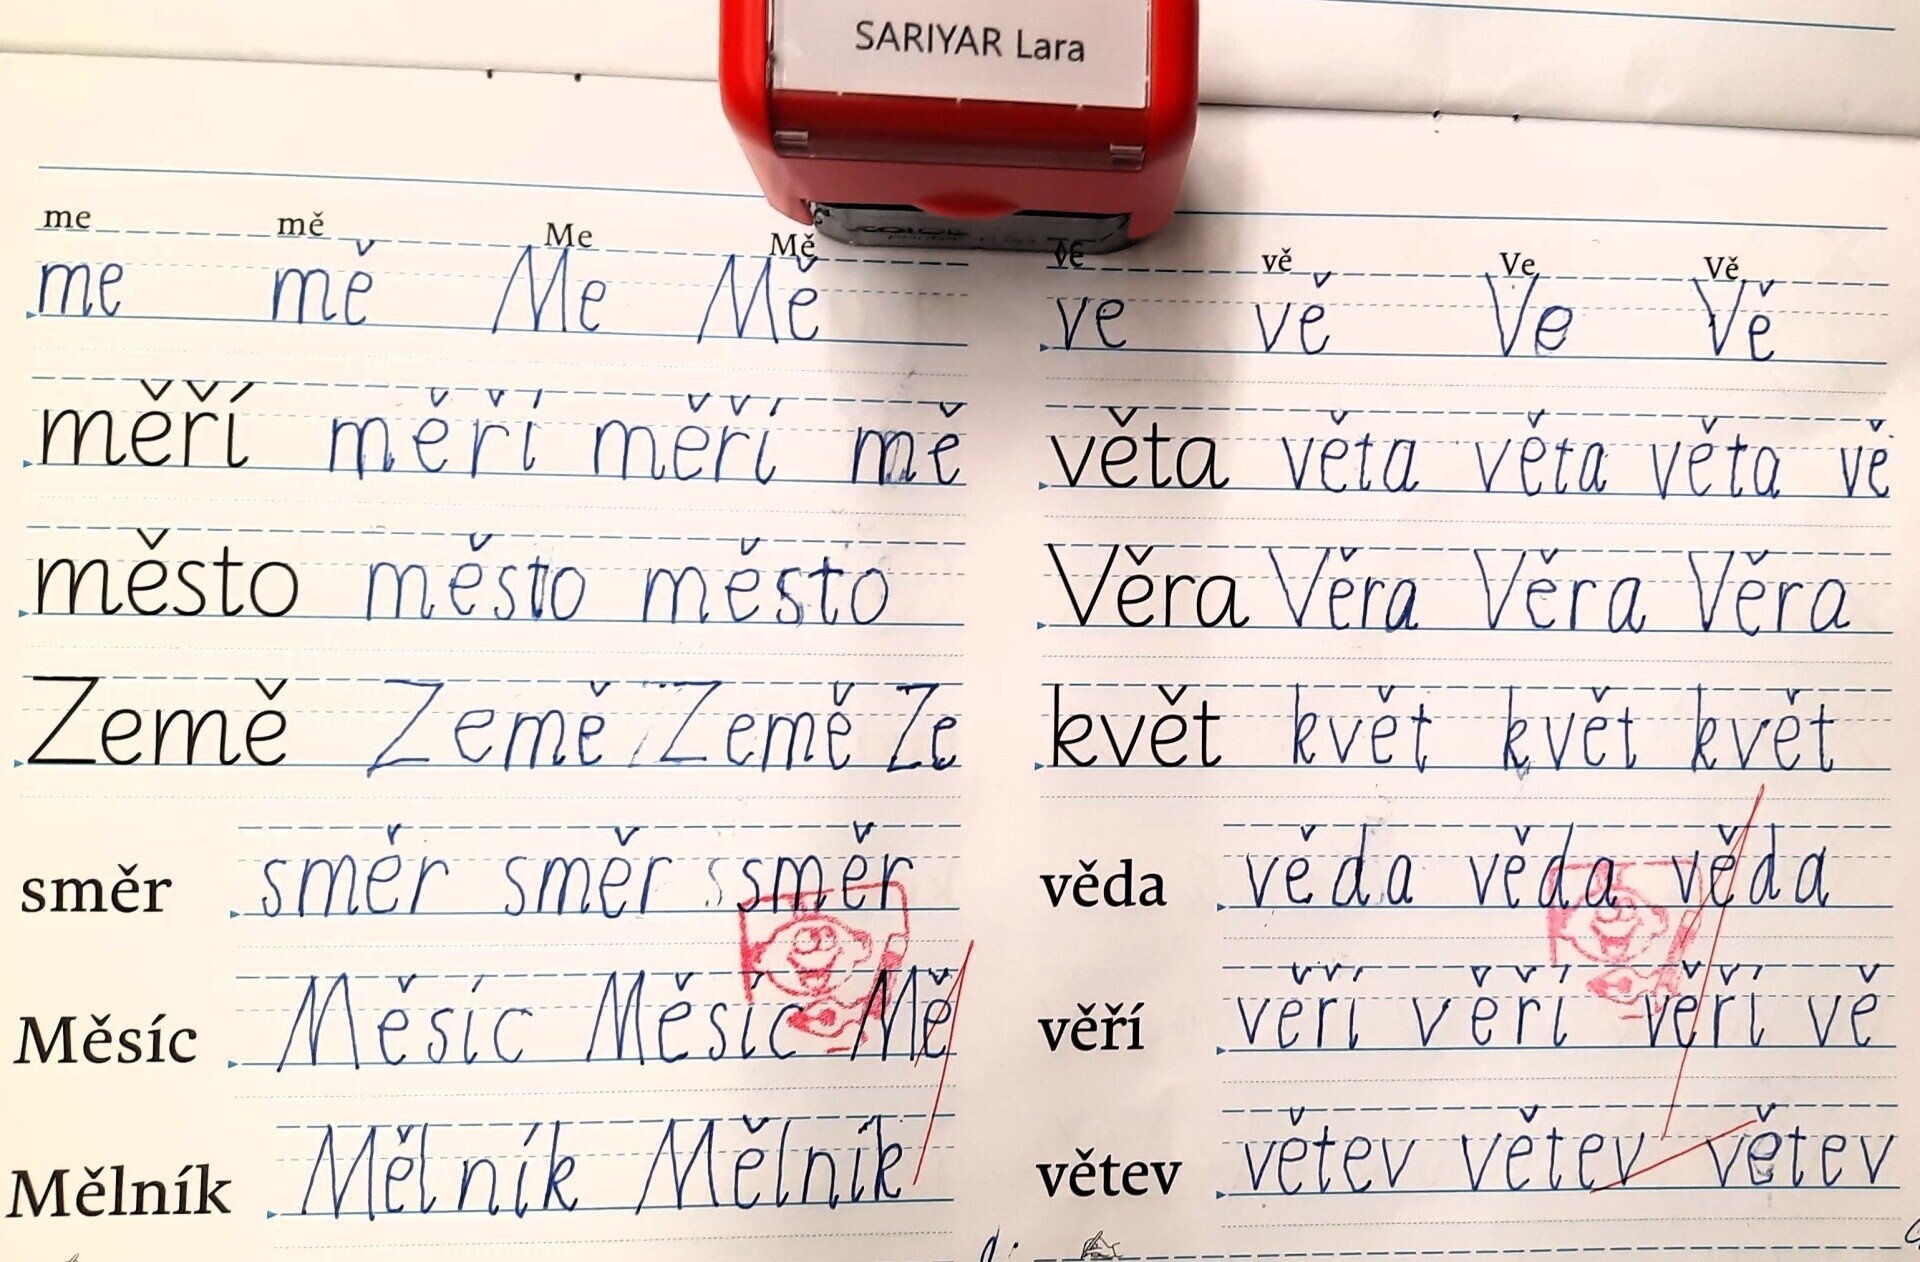 SARIYAR Lara
me mě Me Mě
me mě Me Mě
měří měří měří mě
město město město
Země Země Země Ze
směr směr směr směr
Měsíc Měsíc Měsíc Mě
Mělník Mělník Mělník
ve vě Ve Vě
ve vě Ve Vě
věta věta věta věta vě
Věra Věra Věra Věra
květ květ květ květ
věda věda věda věda
věří veří veří veří vě
větev větev větev větev